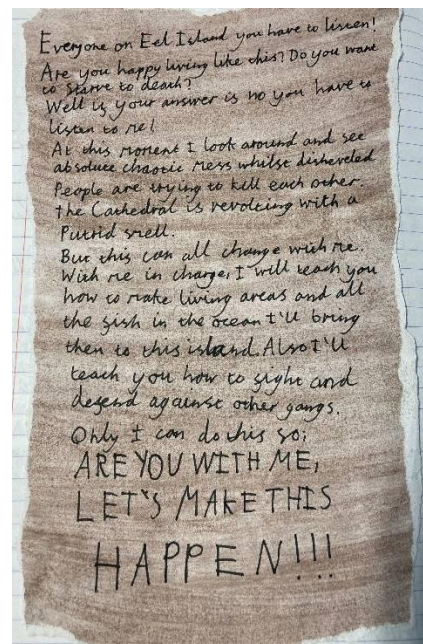 Everyone on Eel Island you have to listen!
Are you happy living like this? Do you want
to starve to death?
Well if your answer is no you have to
listen to me!
At this moment I look around and see
absolute chaotic mess whilst disheveled
People are trying to kill each other.
the Cathedral is revolting with a
Putrid smell.
But this can all change with me.
With me in charge, I will teach you
how to make living areas and all
the fish in the ocean I'll bring
then to this island. Also I'll
teach you how to fight and
defend against other gangs.
Only I can do this so:
ARE YOU WITH ME,
LET'S MAKE THIS
HAPPEN!!!